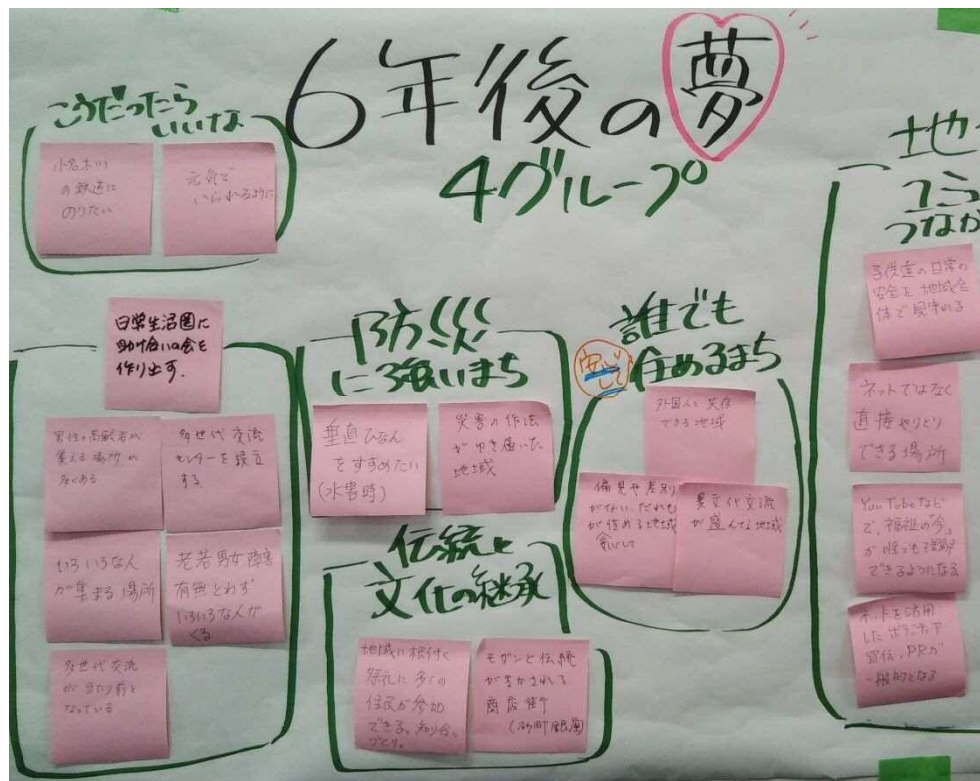 6年後の夢
4グループ
こうだったら
いいな
小名木川
の鉄道に
のりたい
元気で
いられるように
日常生活圏に
助け合いの会を
作り出す.
男性の高齢者が
集える場所が
多くある
多世代交流
センターを設立
する
いろいろな人
が集まる場所
老若男女障害
有無とわず
いろいろな人が
くる
多世代交流
が当たり前と
なっている
防災
に強いまち
垂直ひなん
をすすめたい
(水害時)
災害の作法
がゆき届いた
地域
伝統と
文化の継承
地域に根付く
祭礼に多くの
住民が参加
できる。知り合い
づくり。
モダンと伝統
が生かされる
商店街
(砂町銀座)
誰でも
安心して
住めるまち
外国人と共存
できる地域
偏見や差別
がない だれも
が住める地域
安心して
異文化交流
が盛んな地域
地
つなが
子供達の日常の
安全を地域全
体で見守れる
ネットではなく
直接やりとり
できる場所
YouTubeなど
で、福祉の今
が誰でも理解
できるようになる
ネットを活用
したボランティア
宣伝、PRが
一般的となる